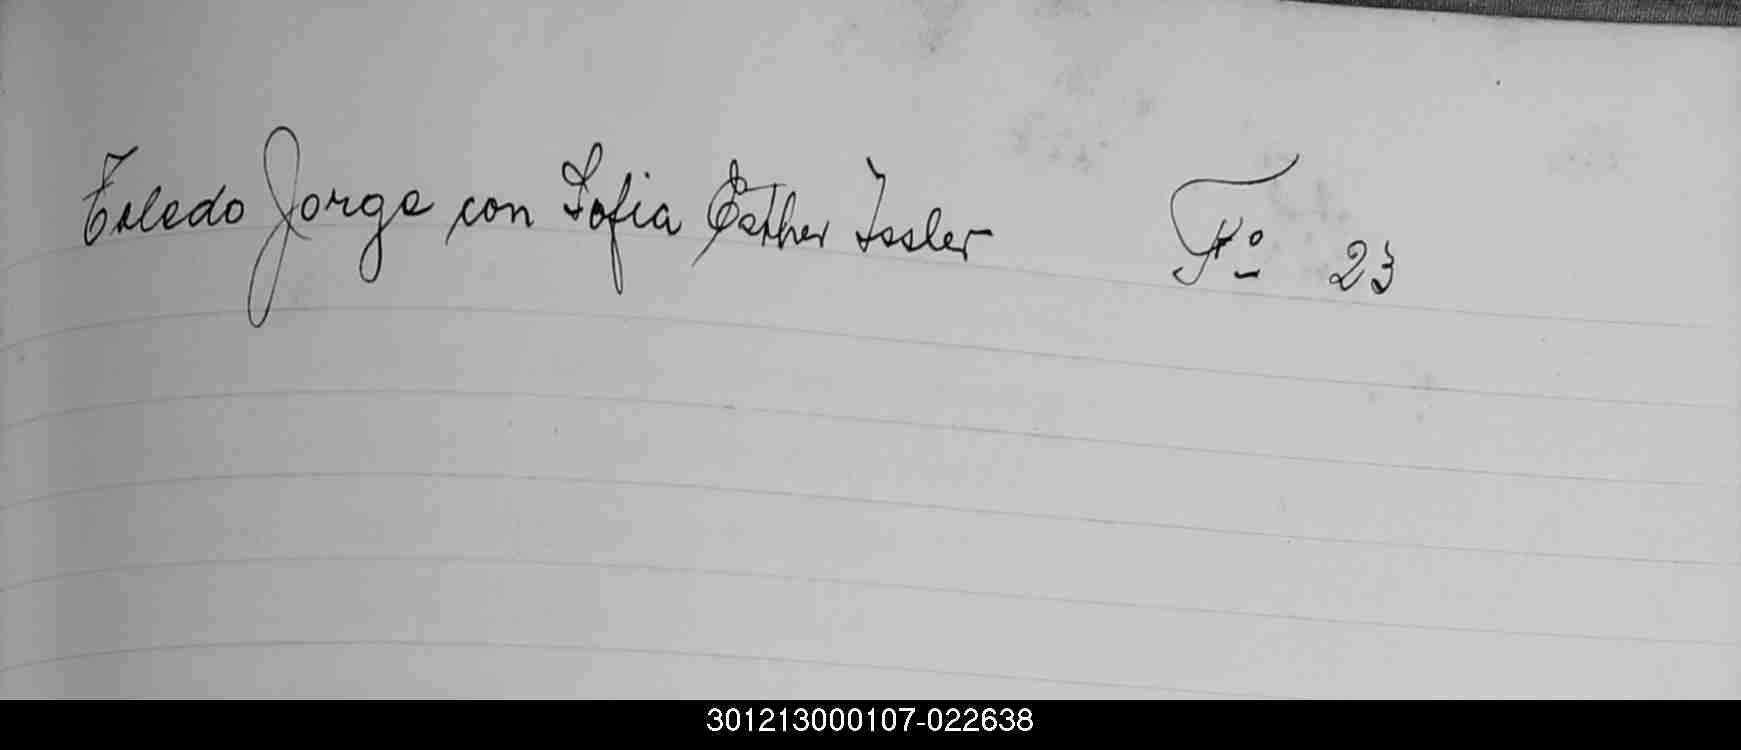 Toledo Jorge con Sofia Esther Issler Fº 23
301213000107-022638